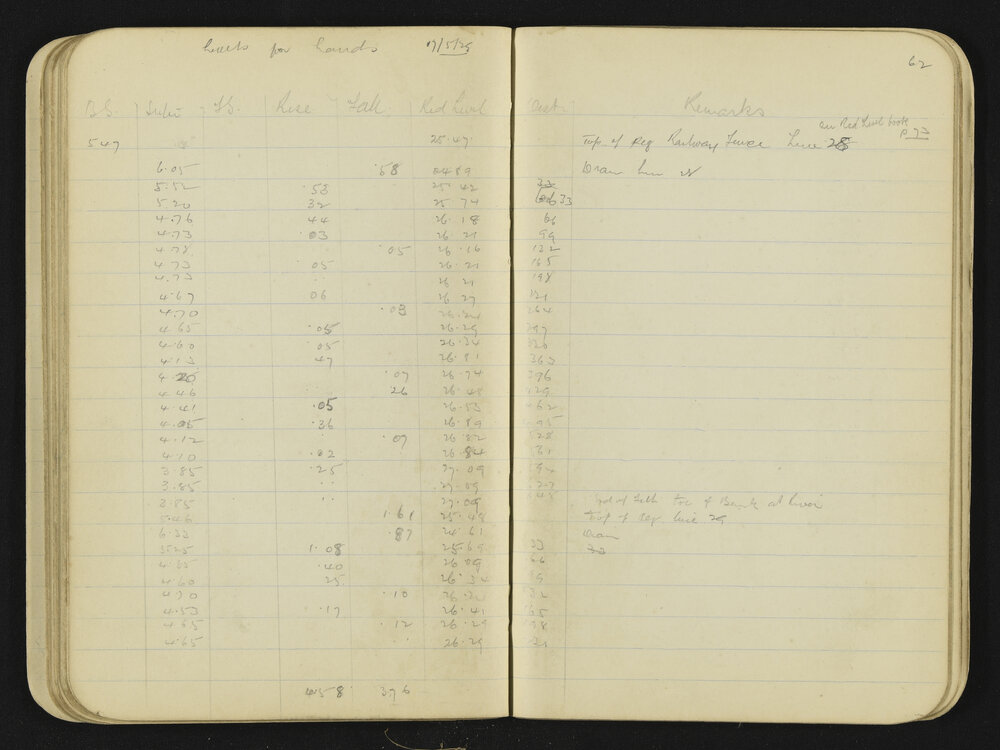 Levels for Lands 19/5/25
62
B.S. Inter F.S. Rise Fall Red Level Dist. Remarks
on Red Level book
p 73
5 47 25.47 Top of peg Railway Fence Line 28
6.05 .58 24 89 Drain
5.52 .53 25 42 33
5.20 32 25 74 33
4.76 44 26.18 66
4.73 .03 26 21 99
4.78 .05 26.16 132
4.73 05 26.21 165
4.73 .. 26 21 198
4.67 06 26 27
4.70 .03 26.24 264
4.65 .05 26.29 297
4.60 .05 26.34
4.13 47 26.81 363
4.20 .07 26.74 396
4.46 26 26.48 429
4.41 .05 26.53 462
4.05 .36 26.89 495
4.12 .07 26.82 528
4.10 .02 26.84 61
3.85 .25 27.09 94
3.85 .. 27.09 27
3.85 .. 27.09 45 Toe of Bank at River
5.46 1.61 25.48 Top of peg line 29
6.33 .87 24.61 Drain
5.25 1.08 25.69 33 33
4.85 .40 26 09 66
4.60 25 26.34 9
4.70 .10 26.24 32
4.53 .17 26.41 65
4.65 .12 26.29 98
4.65 .. 26.29 31
4.58 3.76